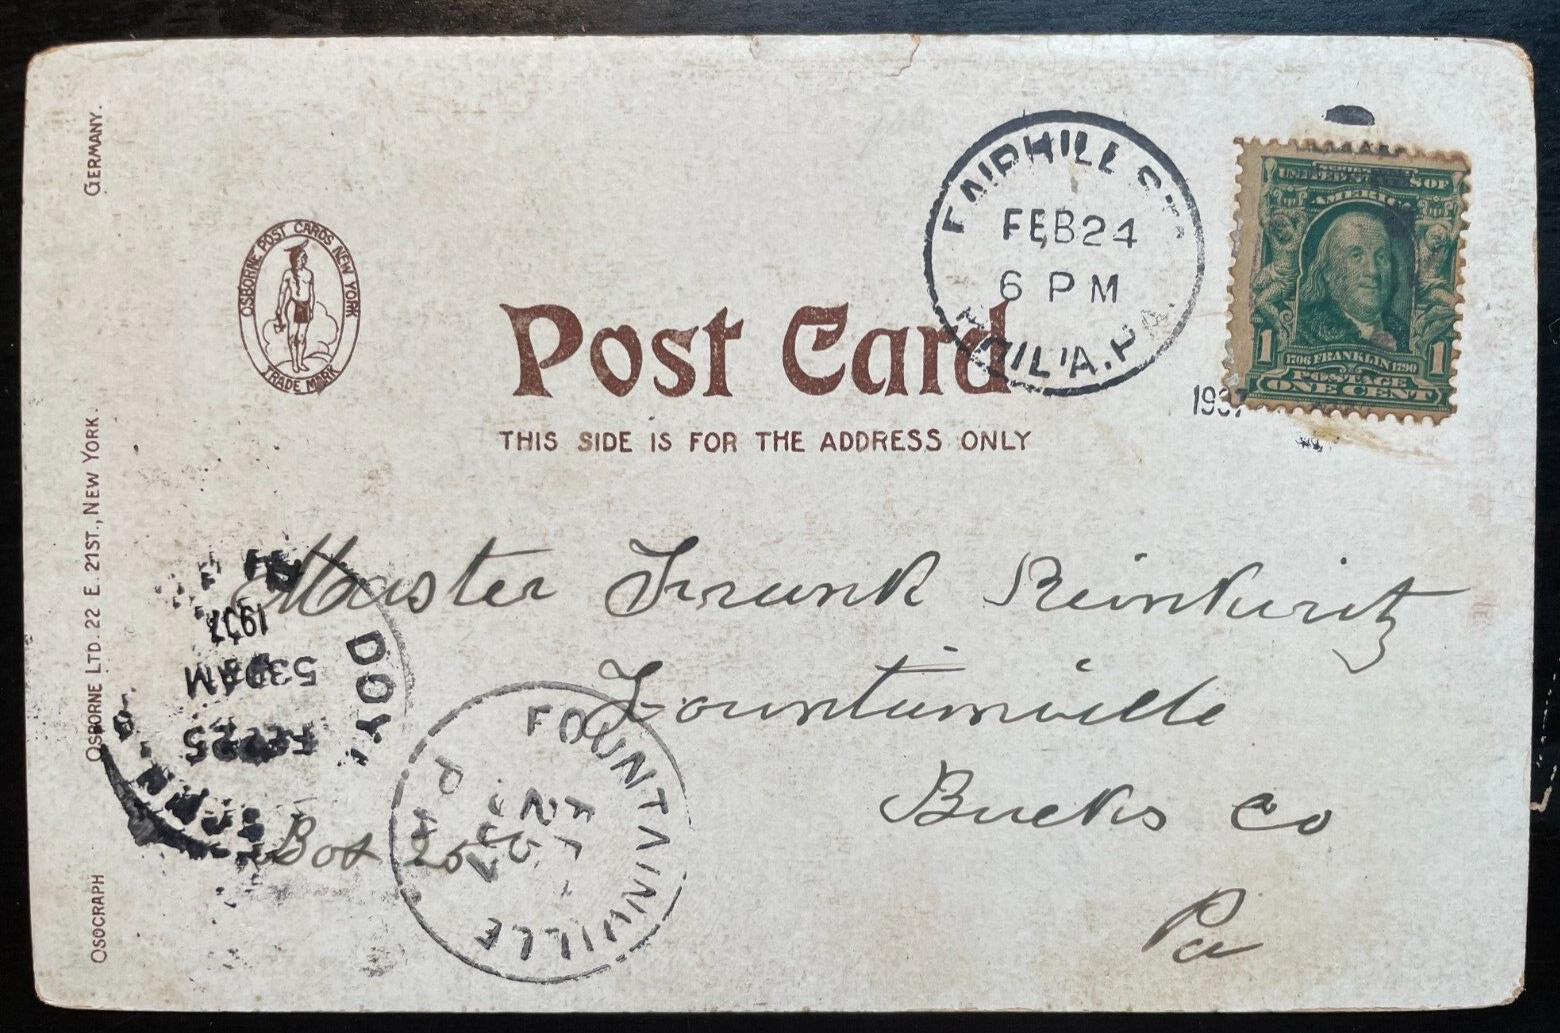 GERMANY.
OSBORNE LTD. 22 E. 21ST., NEW YORK.
OSOGRAPH
OSBORNE POST CARDS NEW YORK
TRADE MARK
Post Card
THIS SIDE IS FOR THE ADDRESS ONLY
FAIRHILL STA.
FEB 24
6 PM
PHIL'A. PA.
UNITED STATES OF
AMERICA
1 1706 FRANKLIN 1790 1
POSTAGE
ONE CENT
Master Frank Reinkuitz
Fountainville
Bucks Co
Pa
Box 25
DOY
FEB 25
530 AM
1907
FOUNTAINVILLE
FEB
25
P